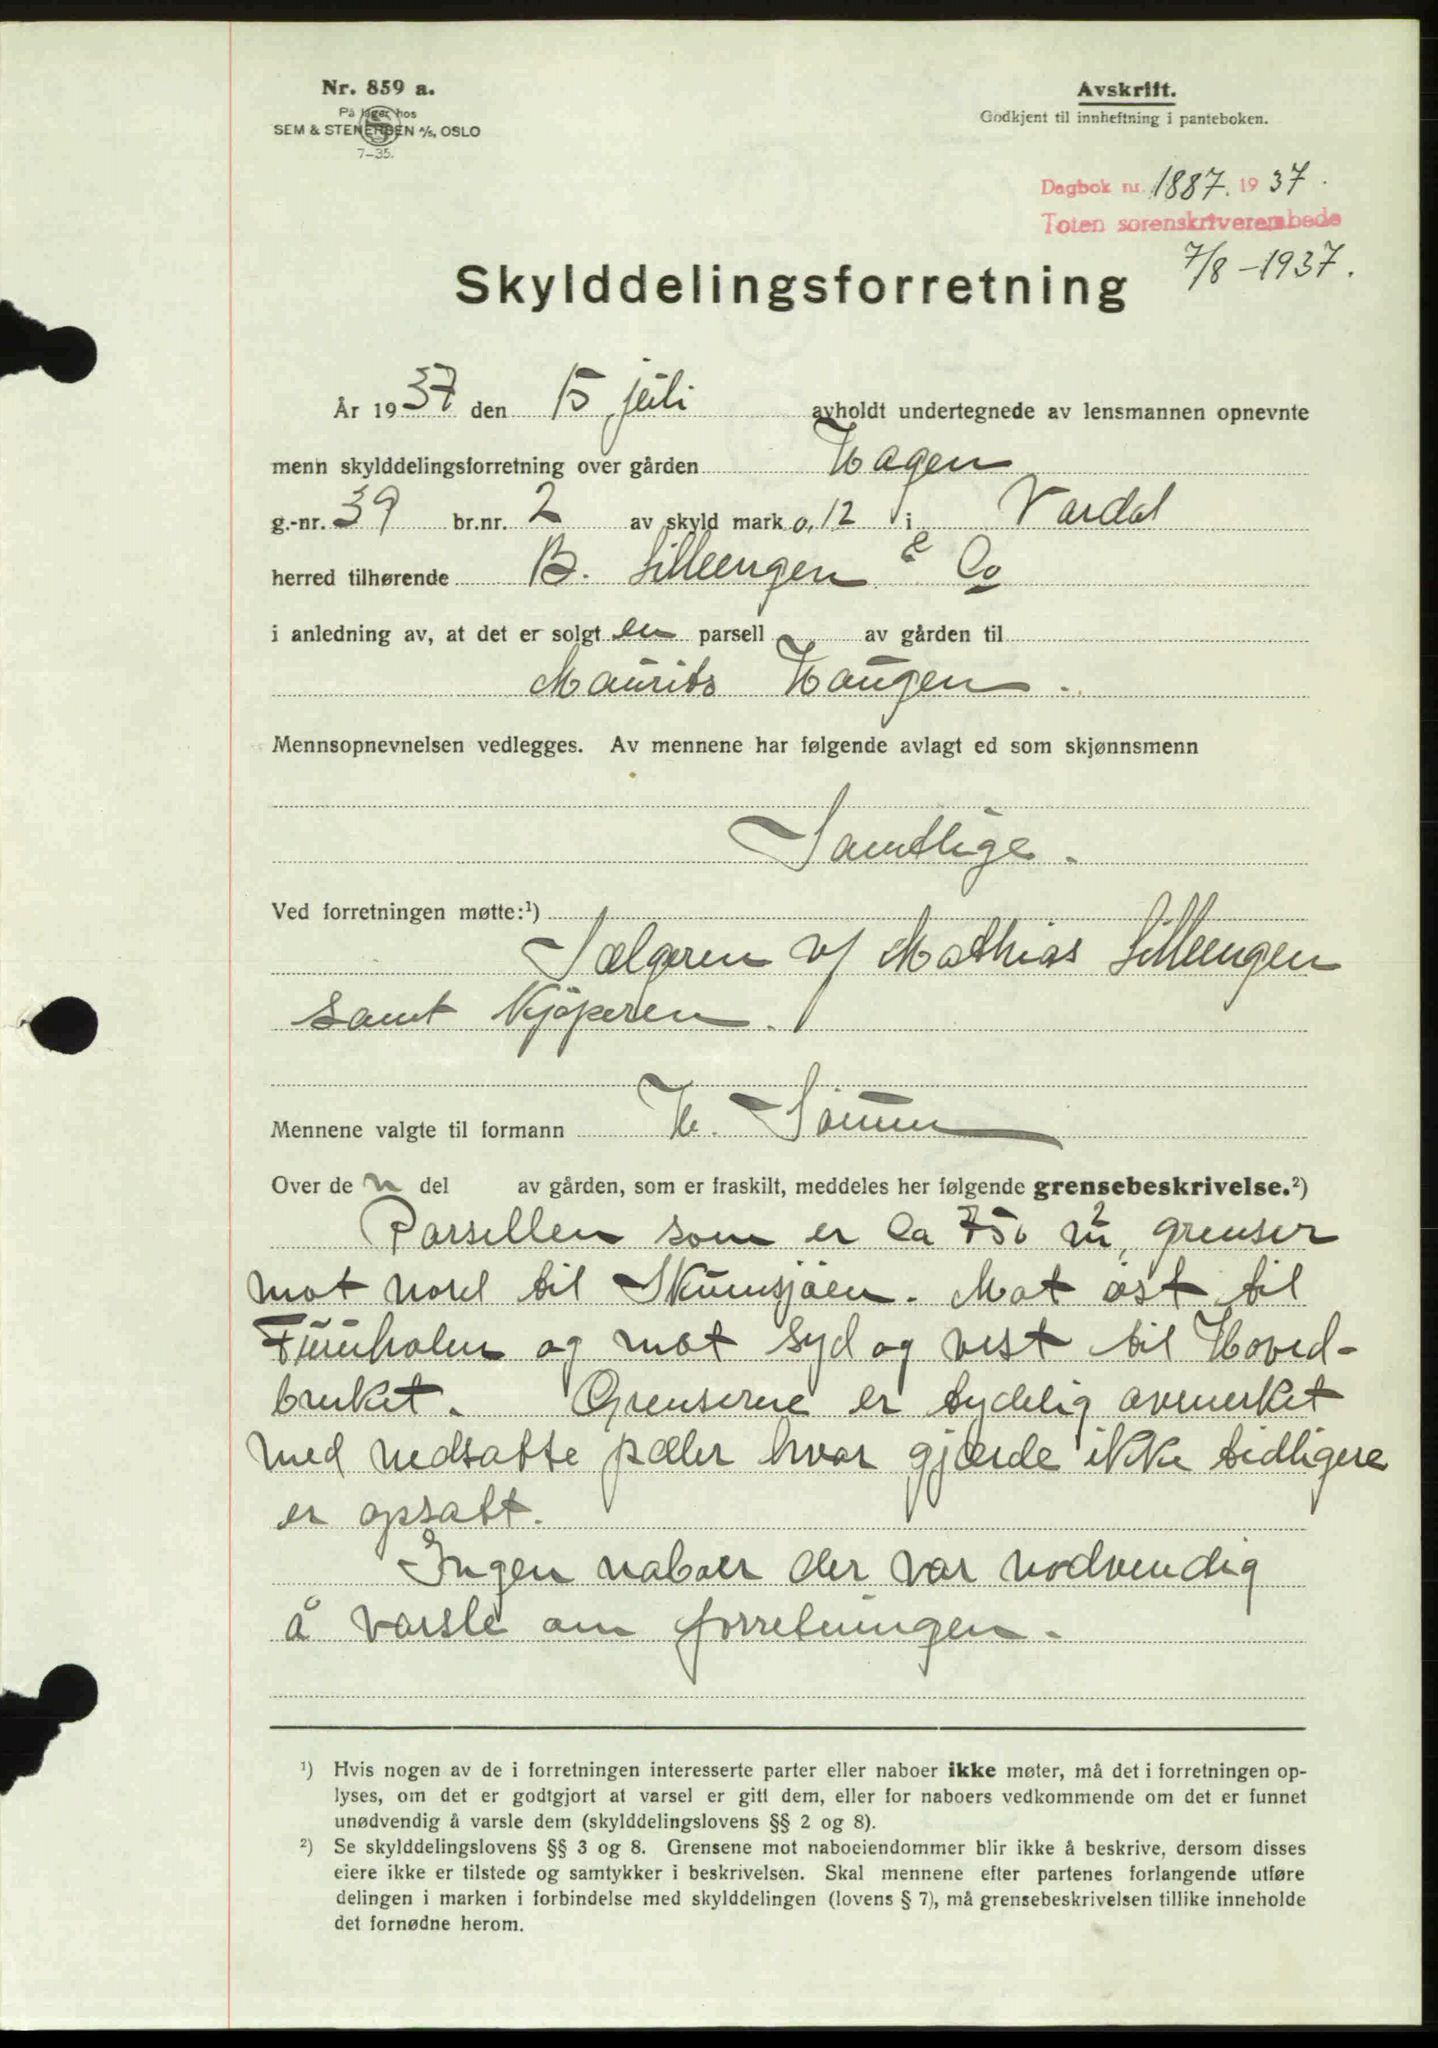 Nr. 859 a.
På lager hos
SEM & STENERSEN A/S, OSLO
7-35.
Avskrift.
Godkjent til innheftning i panteboken.
Dagbok nr. 1887. 1937.
Toten sorenskriverembede
7/8-1937.
Skylddelingsforretning
År 1937 den 15 juli avholdt undertegnede av lensmannen opnevnte
menn skylddelingsforretning over gården Hagen
g.-nr. 39 br.nr. 2 av skyld mark 0,12 i Vardal
herred tilhørende B. Lilleengen & Co
i anledning av, at det er solgt en parsell av gården til
Maurits Haugen.
Mennsopnevnelsen vedlegges. Av mennene har følgende avlagt ed som skjønnsmenn
Samtlige.
Ved forretningen møtte:¹)
Sælgeren v/ Mathias Lilleengen
samt kjöperen.
Mennene valgte til formann H.
Over den del av gården, som er fraskilt, meddeles her følgende grensebeskrivelse.²)
Parsellen som er ca 750 m², grenser
mot nord til Skumsjöen. Mot öst til
og mot syd og vest til Hoved-
bruket. Grenserne er tydelig avmerket
med nedsatte pæler hvor gjærde ikke tidligere
er opsatt.
Ingen naboer der var nödvendig
å varsle om forretningen.
¹) Hvis nogen av de i forretningen interesserte parter eller naboer ikke møter, må det i forretningen op-
lyses, om det er godtgjort at varsel er gitt dem, eller for naboers vedkommende om det er funnet
unødvendig å varsle dem (skylddelingslovens §§ 2 og 8).
²) Se skylddelingslovens §§ 3 og 8. Grensene mot naboeiendommer blir ikke å beskrive, dersom disses
eiere ikke er tilstede og samtykker i beskrivelsen. Skal mennene efter partenes forlangende utføre
delingen i marken i forbindelse med skylddelingen (lovens § 7), må grensebeskrivelsen tillike inneholde
det fornødne herom.